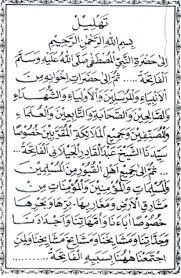 تَهْلِيْل
بِسْمِ اللهِ الرَّحْمٰنِ الرَّحِيْمِ
إِلَى حَضْرَةِ النَّبِيِّ الْمُصْطَفَى صَلَّى اللهُ عَلَيْهِ وَسَلَّمَ
الْفَاتِحَةْ ... ثُمَّ إِلَى حَضَرَاتِ إِخْوَانِهِ مِنَ
الْأَنْبِيَاءِ وَالْمُرْسَلِيْنَ وَالْأَوْلِيَاءِ وَالشُّهَدَاءِ
وَالصَّالِحِيْنَ وَالصَّحَابَةِ وَالتَّابِعِيْنَ وَالْعُلَمَاءِ
وَالْمُصَنِّفِيْنَ وَجَمِيْعِ الْمَلَائِكَةِ الْمُقَرَّبِيْنَ خُصُوْصًا
سَيِّدِنَا الشَّيْخِ عَبْدِ الْقَادِرِ الْجَيْلَانِيِّ الْفَاتِحَةْ
... ثُمَّ إِلَى جَمِيْعِ أَهْلِ الْقُبُوْرِ مِنَ الْمُسْلِمِيْنَ
وَالْمُسْلِمَاتِ وَالْمُؤْمِنِيْنَ وَالْمُؤْمِنَاتِ مِنْ
مَشَارِقِ الْأَرْضِ وَمَغَارِبِهَا بَرِّهَا وَبَحْرِهَا
خُصُوْصًا آبَاءَنَا وَأُمَّهَاتِنَا وَأَجْدَادَنَا
وَجَدَّاتِنَا وَمَشَايِخَنَا وَمَشَايِخَ مَشَايِخِنَا وَلِمَنِ
اجْتَمَعْنَا هٰهُنَا بِسَبَبِهِ الْفَاتِحَةْ ...